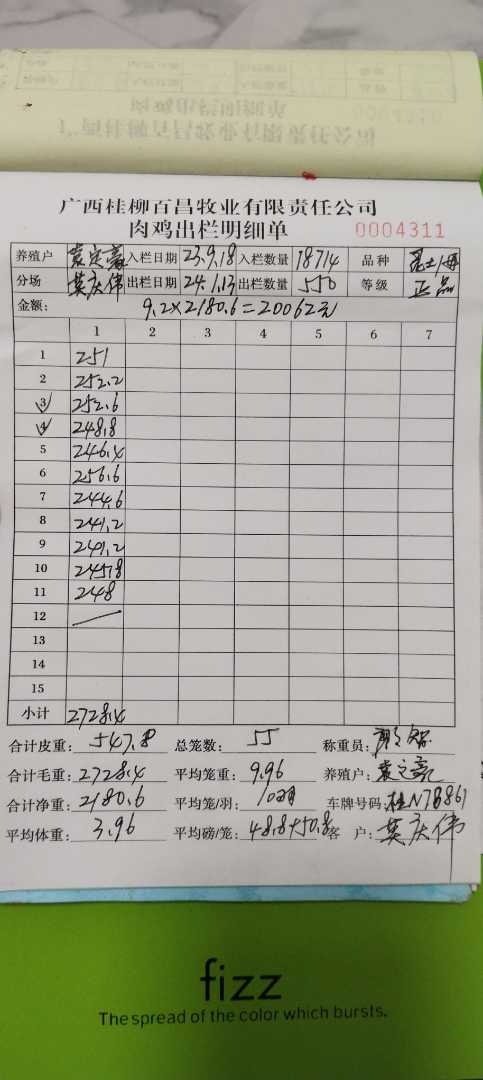 广西桂柳百昌牧业有限责任公司
肉鸡出栏明细单 0004311
养殖户 袁定豪 入栏日期 23.9.18 入栏数量 18714 品种
分场 莫庆伟 出栏日期 24.1.13 出栏数量 550 等级 正品
金额: 9.2×2180.6=20062元
1 2 3 4 5 6 7
1 251
2 252.2
3 252.6
4 248.8
5 246.4
6 256.6
7 244.6
8 241.2
9 241.2
10 245.8
11 248
12
13
14
15
小计 2728.4
合计皮重: 547.8 总笼数: 55 称重员:
合计毛重: 2728.4 平均笼重: 9.96 养殖户: 袁定豪
合计净重: 2180.6 平均笼/羽: 10羽 车牌号码: 桂N7B861
平均体重: 3.96 平均磅/笼: 48.8+50.8 客户: 莫庆伟
fizz
The spread of the color which bursts.